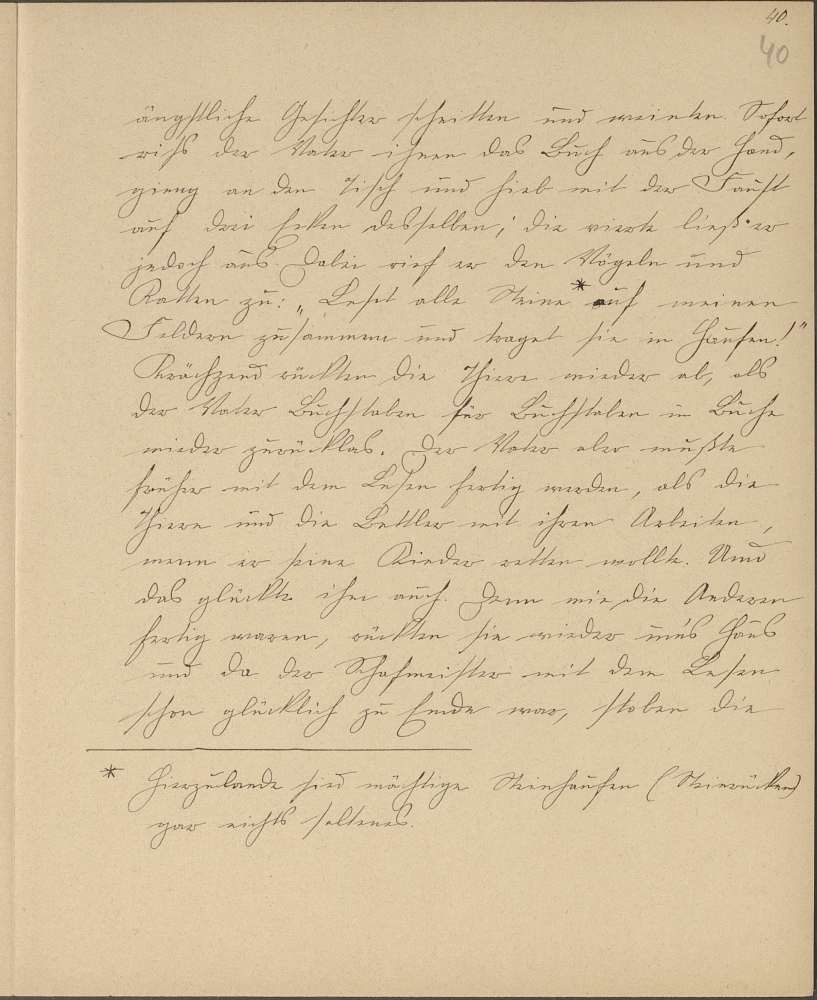 40.
40
ängstliche Gesichter schnitten und weinten. Sofort
riß der Vater ihnen das Buch aus der Hand,
gieng an den Tisch und hieb mit der Faust
auf drei Ecken desselben; die vierte ließ er
jedoch aus. Dabei rief er den Vögeln und
Ratten zu: „Leset alle Steine * auf meinen
Feldern zusammen und traget sie in Haufen!"
Krächzend rückten die Thiere wieder ab, als
der Vater Buchstaben für Buchstaben im Buche
wieder zurücklas. Der Vater aber mußte
früher mit dem Lesen fertig werden, als die
Thiere und die Bettler mit ihren Arbeiten,
wenn er seine Kinder retten wollte. Und
das glückte ihm auch. Denn wie die Anderen
fertig waren, rückten sie wieder in's Haus
und da der Schafmeister mit dem Lesen
schon glücklich zu Ende war, stoben die
* Hierzulande sind mächtige Steinhaufen (Steinrücken)
gar nichts seltenes.